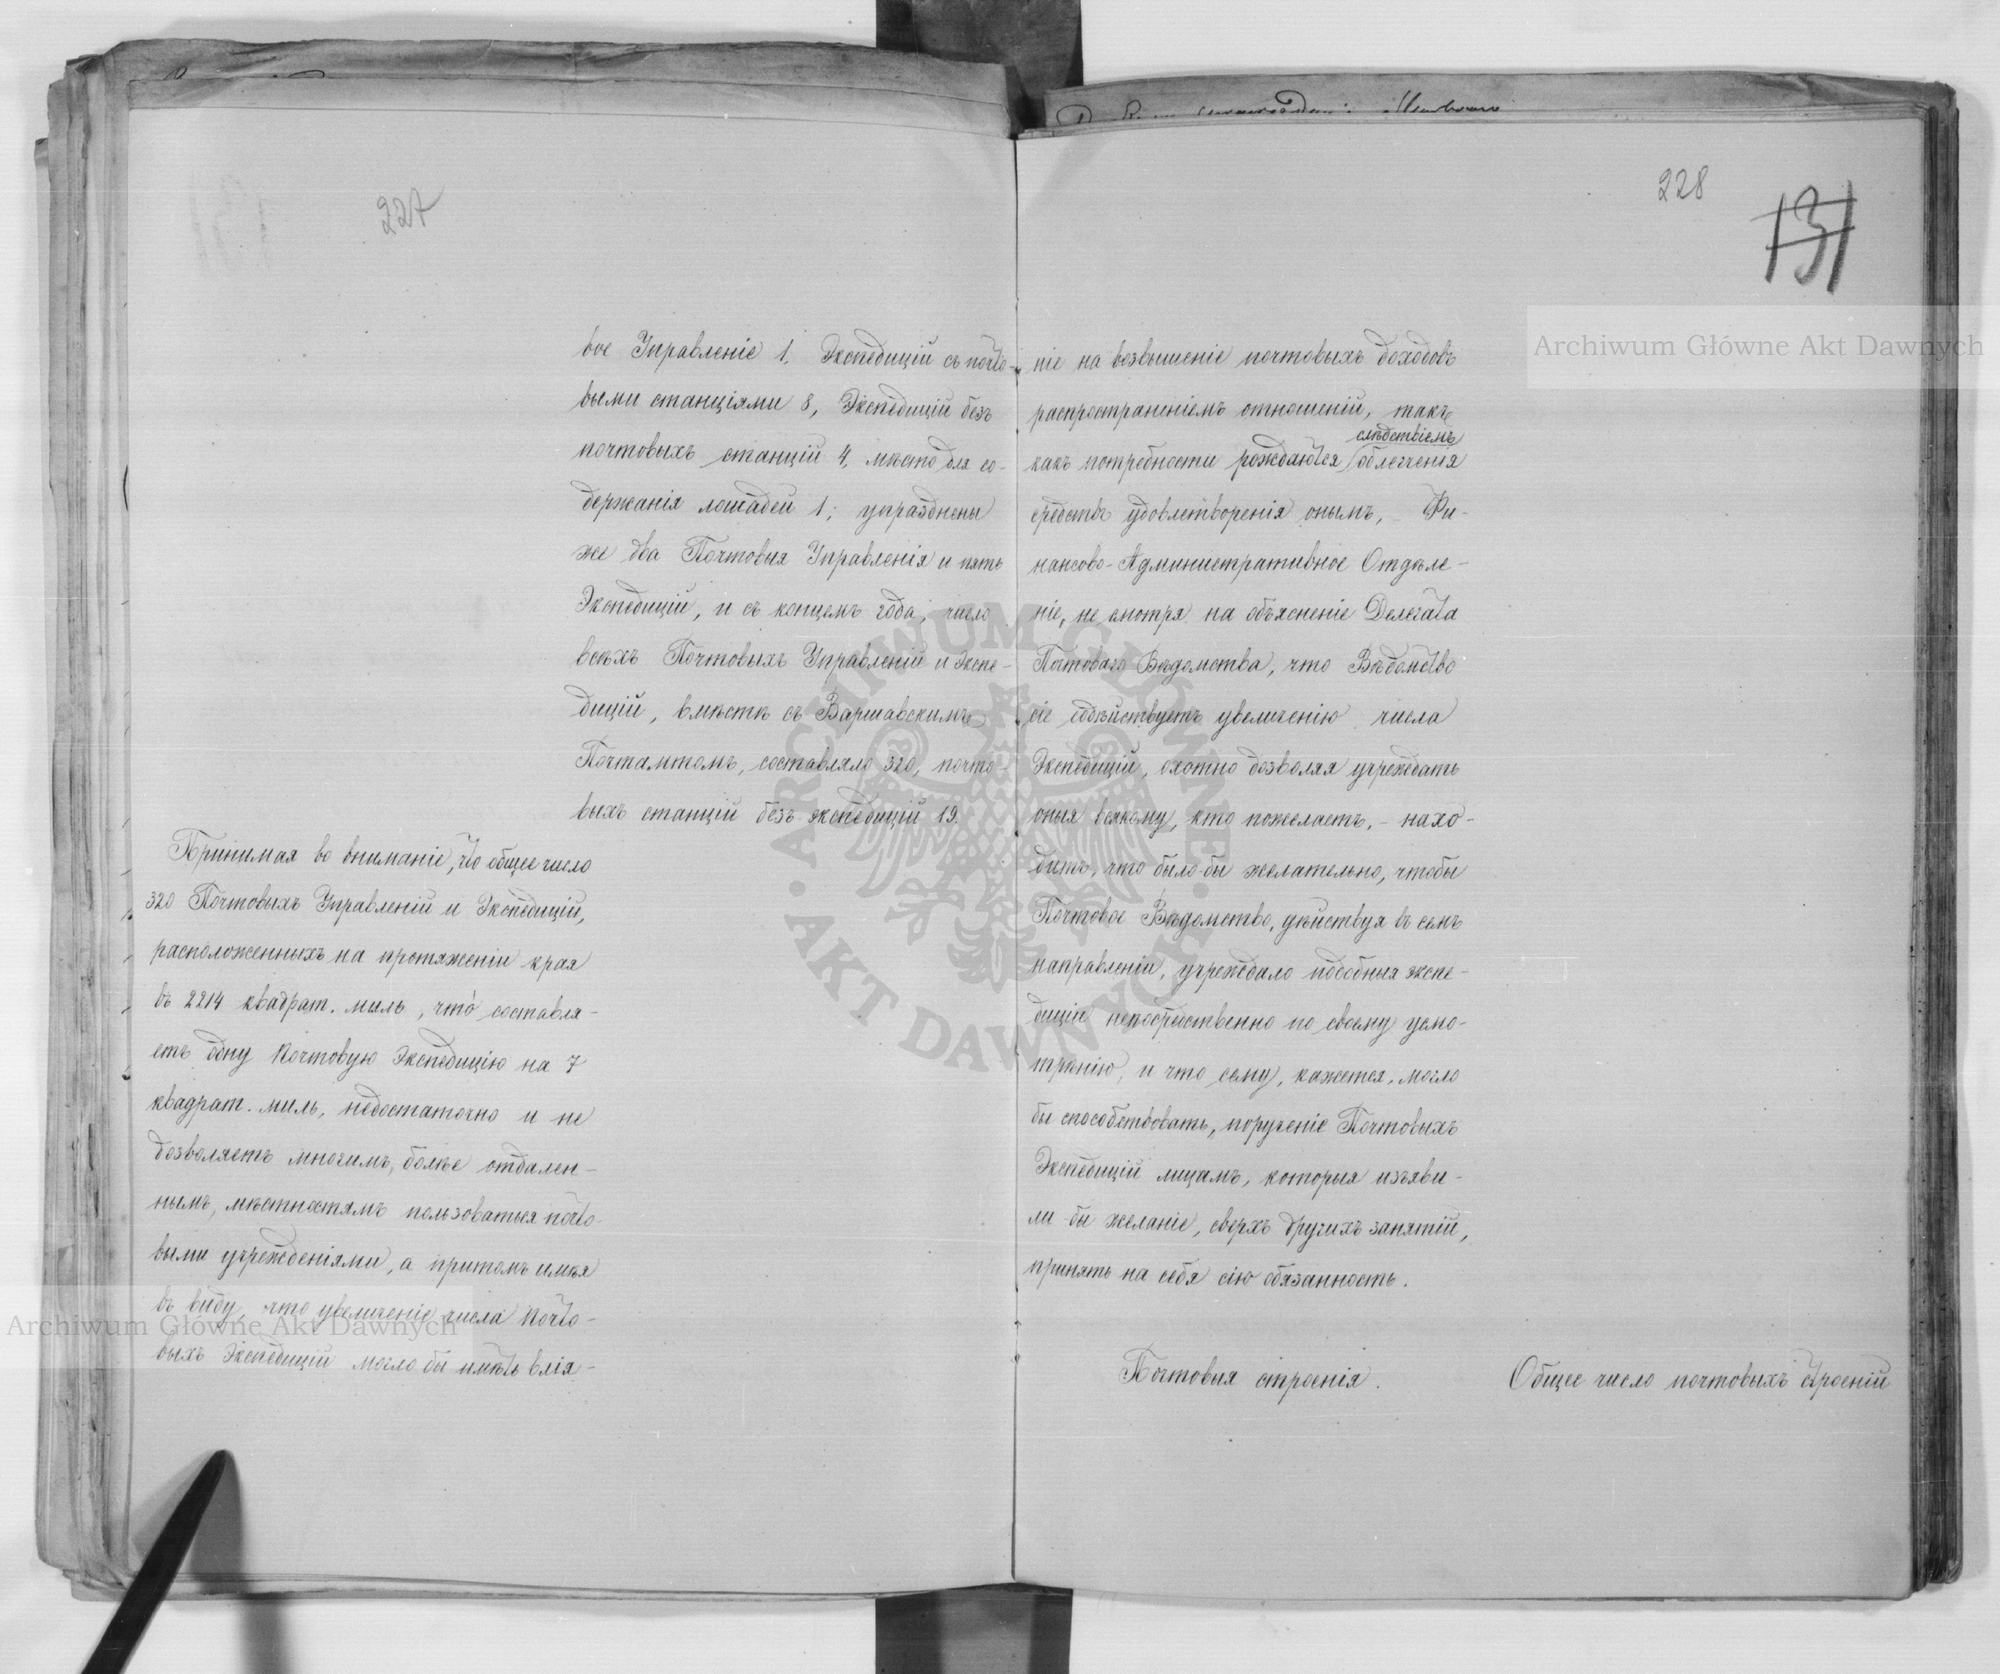 227
вое Управленіе 1, Экспедицій съ почто-
выми станціями 8, Экспедицій безъ
почтовыхъ станцій 4, мѣсто для со-
держанія лошадей 1; упразднены
же два Почтовыя Управленія и пять
Экспедицій, и съ концемъ года, число
всѣхъ Почтовыхъ Управленій и Экспе-
дицій, вмѣстѣ съ Варшавскимъ
Почтамтомъ, составляло 320, почто-
выхъ станцій безъ экспедицій 19.
Принимая во вниманіе, что общее число
320 Почтовыхъ Управленій и Экспедицій,
расположенныхъ на протяженіи края
въ 2214 квадрат. миль, что́ составля-
етъ одну почтовую Экспедицію на 7
квадрат. миль, недостаточно и не
дозволяетъ многимъ, болѣе отдален-
нымъ, мѣстностямъ пользоваться почто-
выми учрежденіями, а притомъ имѣя
въ виду, что увеличеніе числа Почто-
выхъ Экспедицій могло бы имѣть влія-
228
131
ніе на возвышеніе почтовыхъ доходовъ
распространеніемъ отношеній, такъ
слѣдствіемъ
какъ потребности рождаются облегченія
средствъ удовлетворенія онымъ, Фи-
нансово-Административное Отдѣле-
ніе, не смотря на объясненіе Делегата
Почтоваго Вѣдомства, что Вѣдомство
сіе содѣйствуетъ увеличенію числа
Экспедицій, охотно дозволяя учреждать
оныя всякому, кто пожелаетъ, - нахо-
дитъ, что было-бы желательно, чтобы
Почтовое Вѣдомство, дѣйствуя въ семъ
направленіи, учреждало подобныя экспе-
диціи непосредственно по своему усмо-
трѣнію, и что сему, кажется, могло
бы способствовать, порученіе Почтовыхъ
Экспедицій лицамъ, которыя изъяви-
ли-бы желаніе, сверхъ другихъ занятій,
принять на себя сію обязанность.
Почтовыя строенія.
Общее число почтовыхъ строеній
Archiwum Główne Akt Dawnych
Archiwum Główne Akt Dawnych
ARCHIWUM GŁÓWNE AKT DAWNYCH